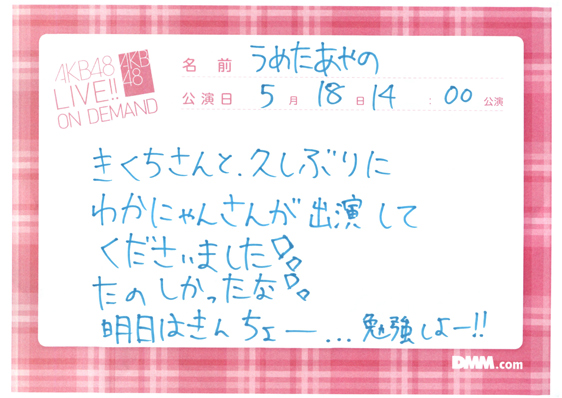 AKB48
LIVE!!
ON DEMAND
AKB
48
名前 うめたあやの
公演日 5月18日14:00公演
きくちさんと、久しぶりに
わかにゃんさんが出演して
くださいました!!
たのしかったな!!
明日はさんちょー…勉強しよー!!
DMM.com